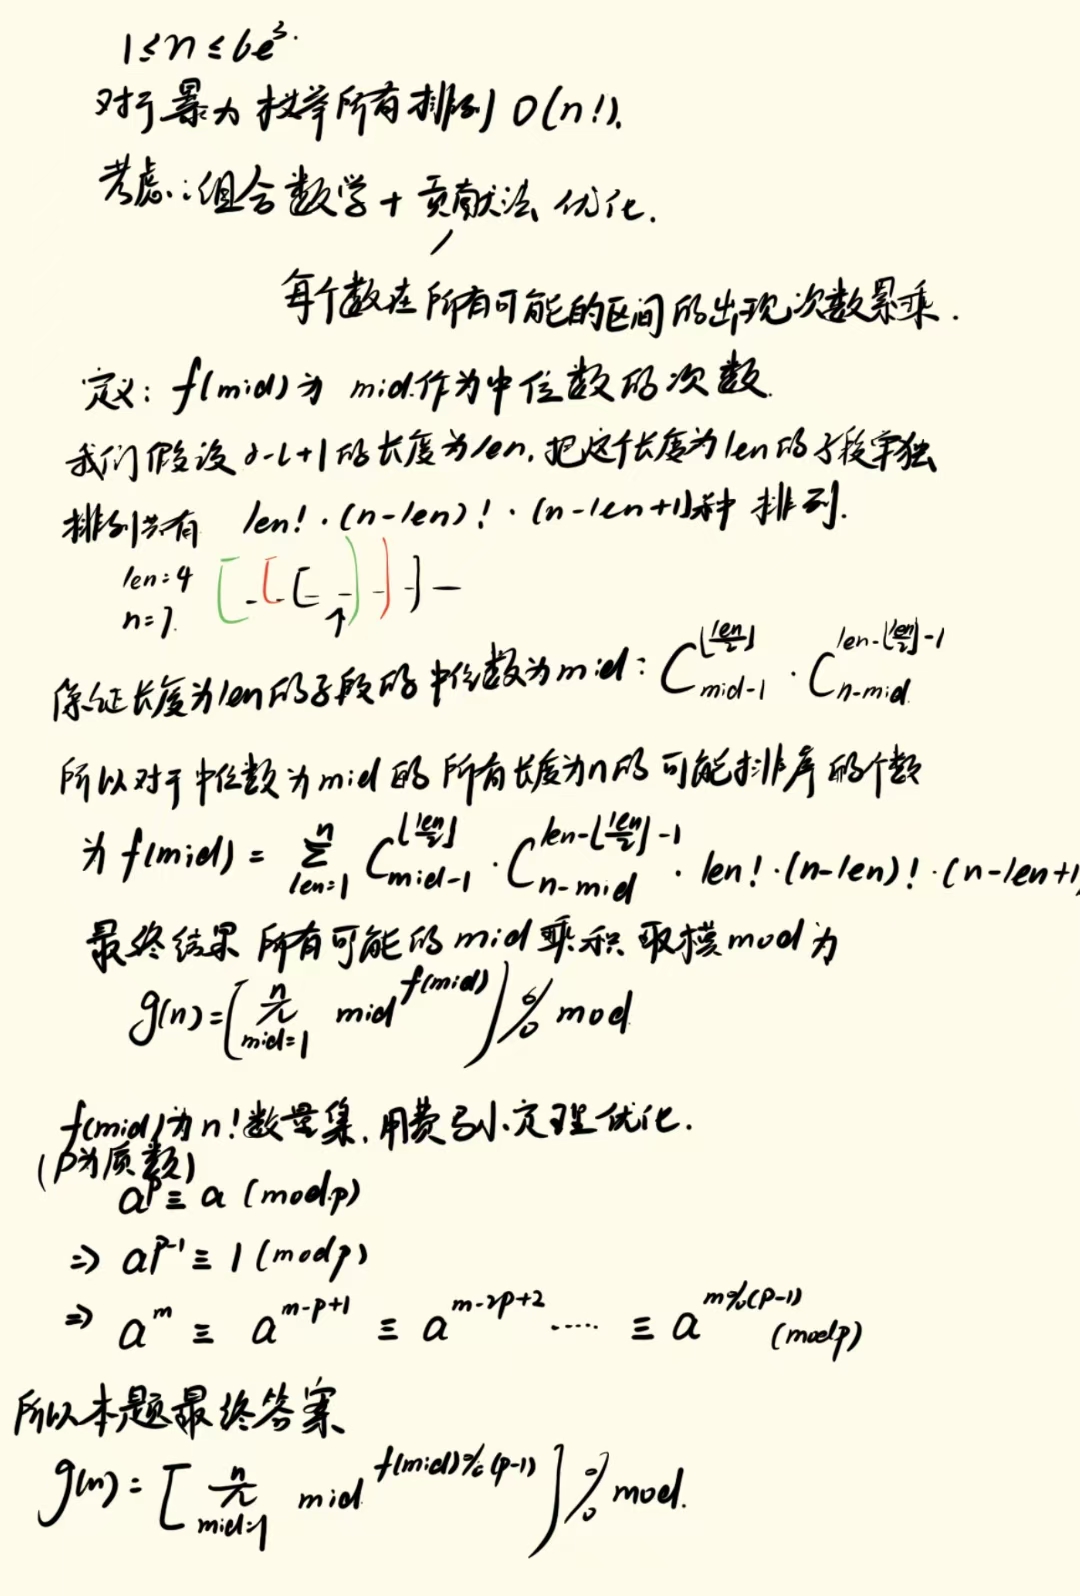 1≤n≤6e³.
对于暴力枚举所有排列O(n!).
考虑:组合数学+贡献法优化.
每个数在所有可能的区间的出现次数累乘.
定义: f(mid)为 mid作为中位数的次数.
我们假设r-l+1的长度为len,把这个长度为len的子段单独
排列共有 len!·(n-len)!·(n-len+1)种 排列.
len=4
n=7.
保证长度为len的子段的中位数为mid: C_{mid-1}^{⌊len/2⌋} · C_{n-mid}^{len-⌊len/2⌋-1}
所以对于中位数为mid的所有长度为n的可能排序的个数
为 f(mid) = ∑_{len=1}^{n} C_{mid-1}^{⌊len/2⌋} · C_{n-mid}^{len-⌊len/2⌋-1} · len!·(n-len)!·(n-len+1)
最终结果 所有可能的mid乘积取模mod为
g(n)=[π_{mid=1}^{n} mid^{f(mid)}]% mod
f(mid)为n!数量集,用费马小定理优化.
(p为质数)
a^p ≡ a (mod p)
⇒ a^{p-1} ≡ 1 (mod p)
⇒ a^m ≡ a^{m-p+1} ≡ a^{m-2p+2} ····· ≡ a^{m%(p-1)} (mod p)
所以本题最终答案
g(n)= [π_{mid=1}^{n} mid^{f(mid)%(p-1)}]% mod.